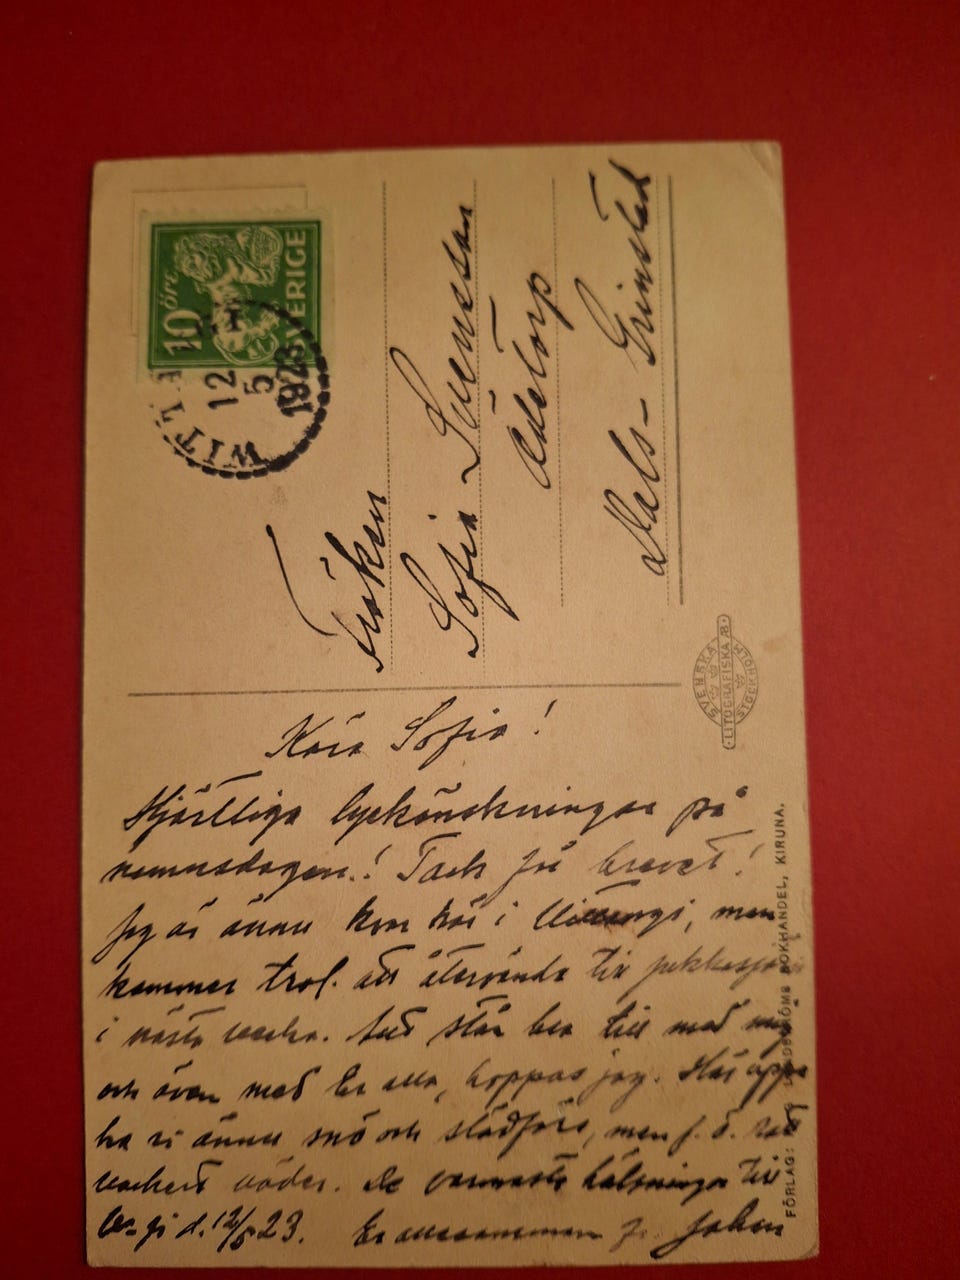 10 öre
SVERIGE
WITTA
12
5
1923
Fröken
Sofia Svensson
Ödetorp
Dals-Grinstad
SVENSKA
LITOGRAFISKA AB
STOCKHOLM
Kära Sofia!
Hjärtliga lyckönskningar på
namnsdagen! Tack för brevet!
Jag är ännu kvar här i Vittangi, men
kommer trol. att återvända till Jukkasjärvi
i nästa vecka. Allt står bra till med mig
och även med Er alla, hoppas jag. Här uppe
ha vi ännu snö och slädföre, men f. ö. rätt
vackert väder. De varmaste hälsningar till
d. 12/5 23. Er allesamman fr. Johan
FÖRLAG: BOKHANDEL, KIRUNA.